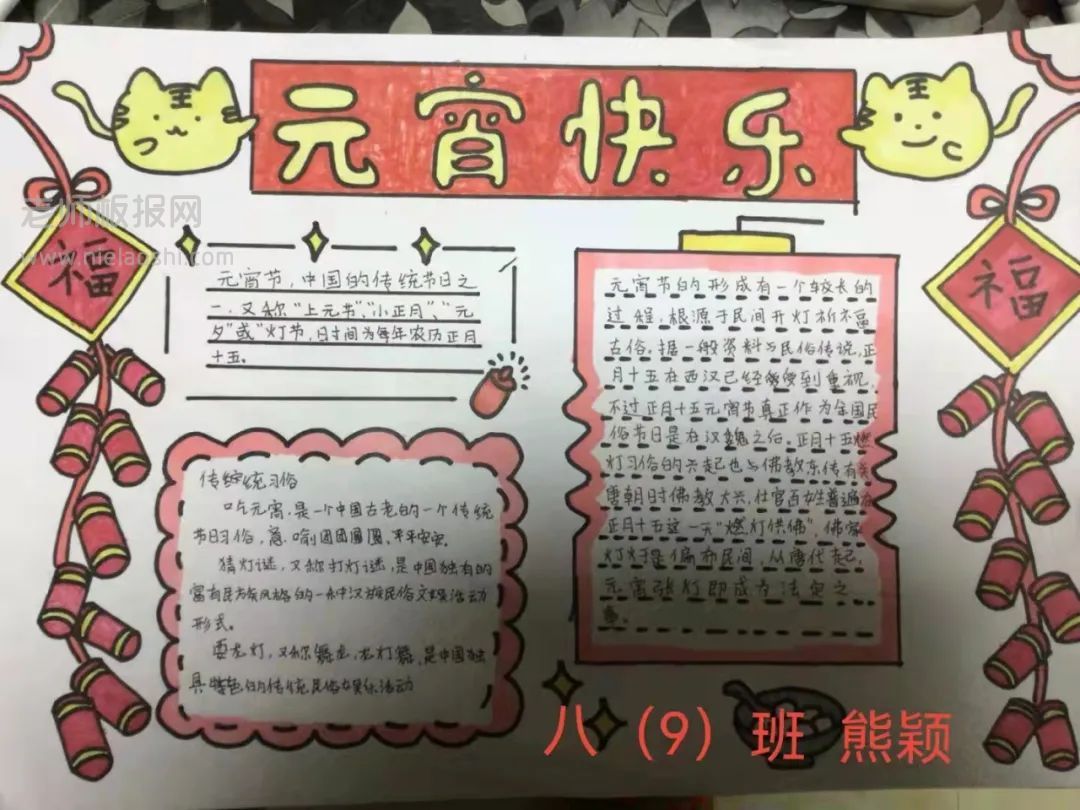 元宵快乐
王
王
福
福
老师板报网
www.nielaoshi.com
元宵节,中国的传统节日之
一,又称"上元节","小正月","元
夕"或"灯节,日时间为每年农历正月
十五。
传统习俗
吃元宵,是一个中国古老的一个传统
节日习俗,意喻团团圆圆,平平安安。
猜灯谜,又称打灯谜,是中国独有的
富有民族风格的一种汉族民俗文娱活动
形式。
耍龙灯,又称舞龙,龙灯舞,是中国独
具特色的传统民俗娱乐活动
元宵节的形成有一个较长的
过程,根源于民间开灯祈福
古俗。据一般资料与民俗传说,正
月十五在西汉已经受到重视,
不过正月十五元宵节真正作为全国民
俗节日是在汉魏之后。正月十五燃
灯习俗的兴起也与佛教东传有关
唐朝时佛教大兴,仕官百姓普遍在
正月十五这一天"燃灯供佛",佛家
灯火于是遍布民间,从唐代起,
元宵张灯即成为法定之
事。
八(9)班 熊颖